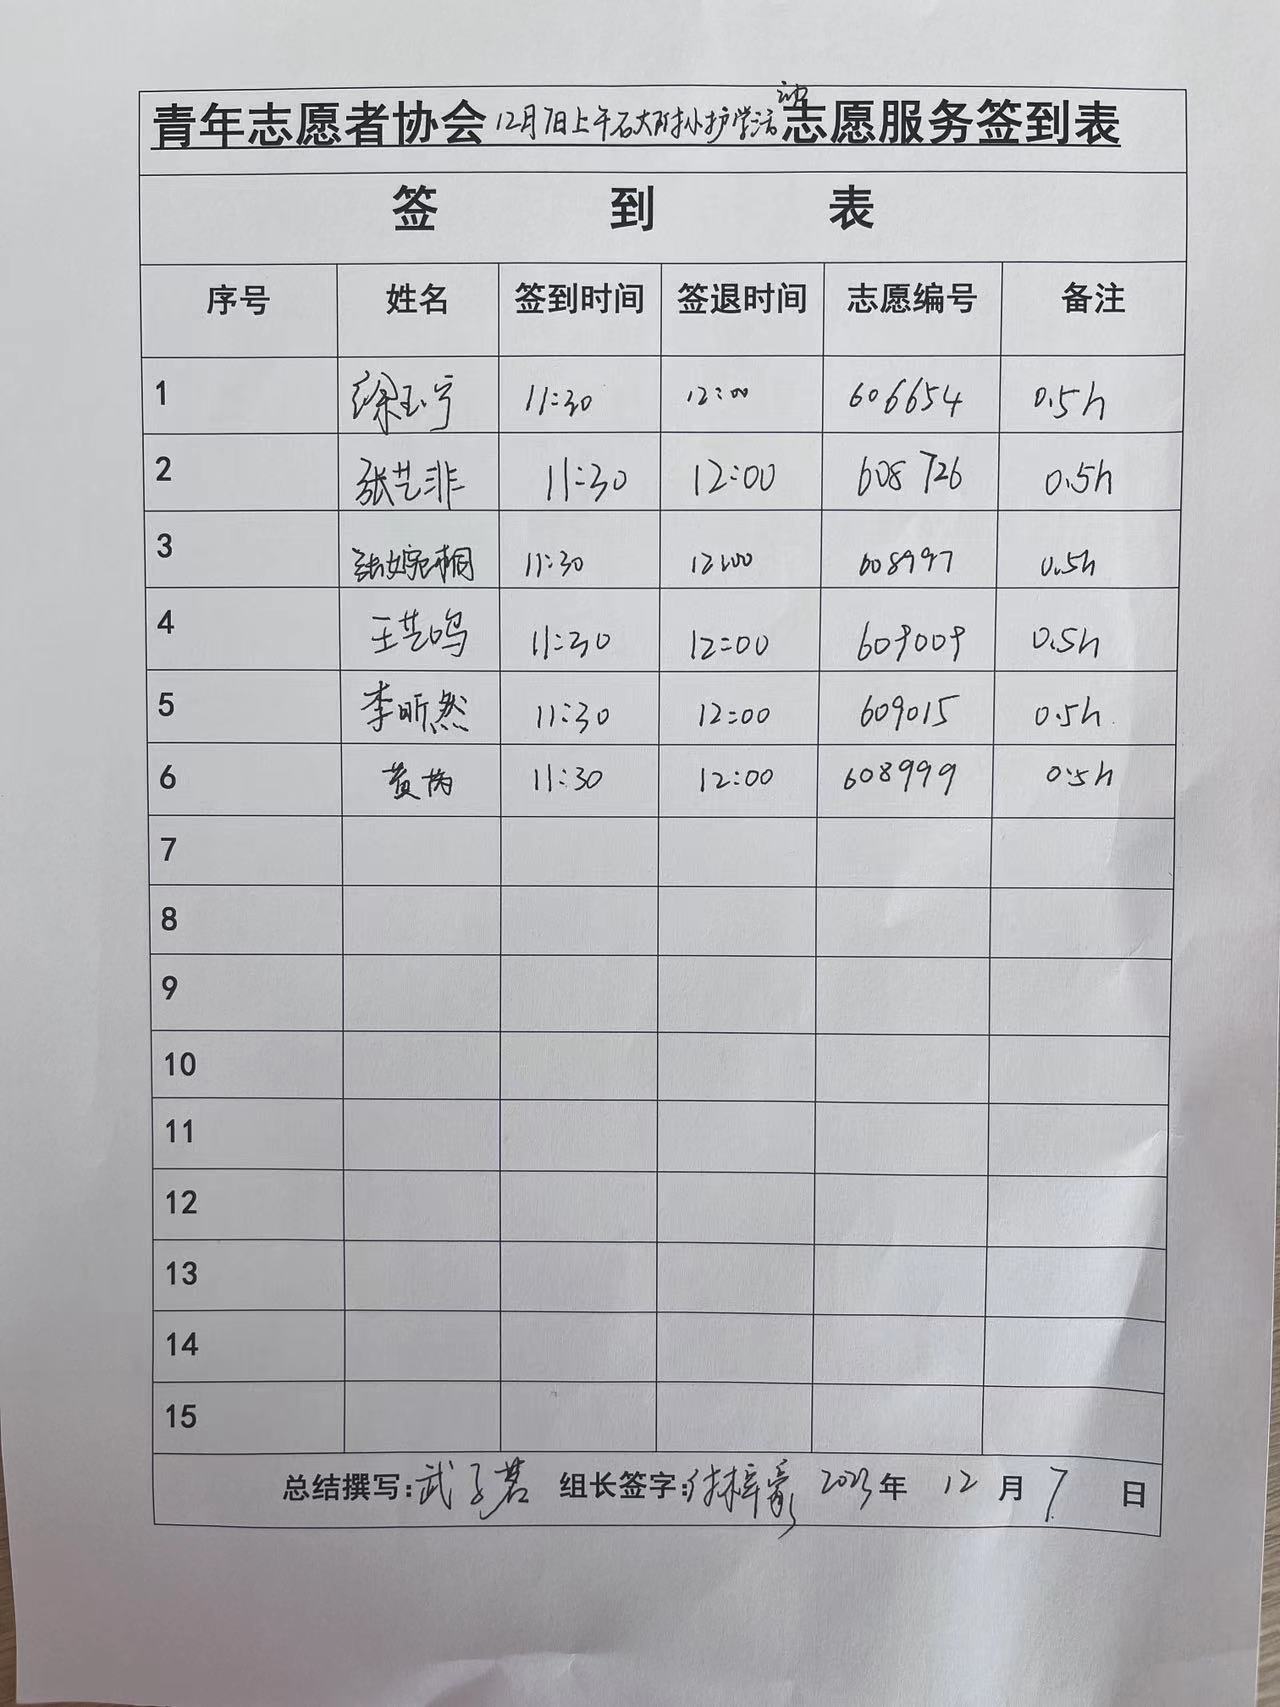 青年志愿者协会12月7日上午石大附小护学活动志愿服务签到表
签 到 表
序号 姓名 签到时间 签退时间 志愿编号 备注
1 徐玉宁 11:30 12:00 606654 0.5h
2 张艺非 11:30 12:00 608726 0.5h
3 张婉桐 11:30 12:00 608997 0.5h
4 王艺鸣 11:30 12:00 609009 0.5h
5 李昕然 11:30 12:00 609015 0.5h
6 黄芮 11:30 12:00 608999 0.5h
7
8
9
10
11
12
13
14
15
总结撰写:武子茗 组长签字: 2023年 12 月 7 日